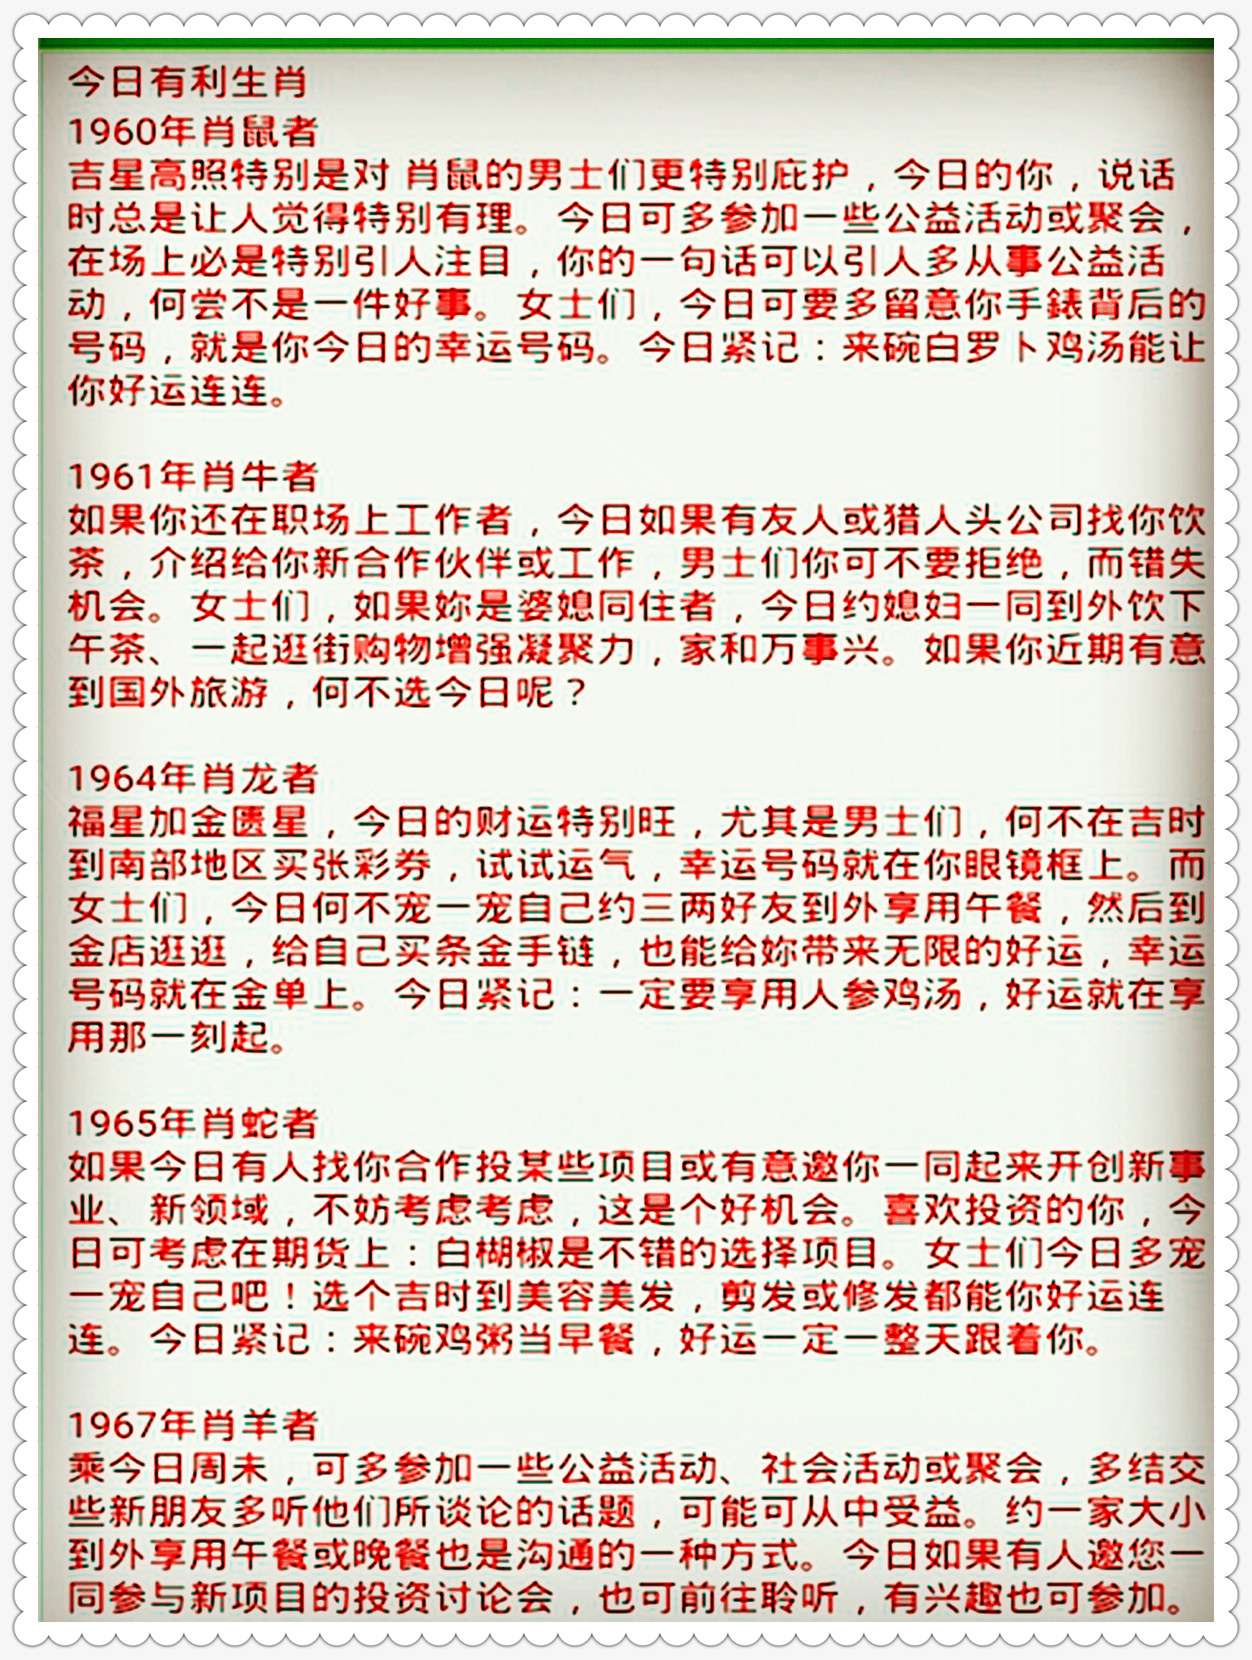 今日有利生肖
1960年肖鼠者
吉星高照特别是对 肖鼠的男士们更特别庇护，今日的你，说话
时总是让人觉得特别有理。今日可多参加一些公益活动或聚会，
在场上必是特别引人注目，你的一句话可以引人多从事公益活
动，何尝不是一件好事。女士们，今日可要多留意你手錶背后的
号码，就是你今日的幸运号码。今日紧记：来碗白罗卜鸡汤能让
你好运连连。
1961年肖牛者
如果你还在职场上工作者，今日如果有友人或猎人头公司找你饮
茶，介绍给你新合作伙伴或工作，男士们你可不要拒绝，而错失
机会。女士们，如果妳是婆媳同住者，今日约媳妇一同到外饮下
午茶、一起逛街购物增强凝聚力，家和万事兴。如果你近期有意
到国外旅游，何不选今日呢？
1964年肖龙者
福星加金匮星，今日的财运特别旺，尤其是男士们，何不在吉时
到南部地区买张彩券，试试运气，幸运号码就在你眼镜框上。而
女士们，今日何不宠一宠自己约三两好友到外享用午餐，然后到
金店逛逛，给自己买条金手链，也能给妳带来无限的好运，幸运
号码就在金单上。今日紧记：一定要享用人参鸡汤，好运就在享
用那一刻起。
1965年肖蛇者
如果今日有人找你合作投某些项目或有意邀你一同起来开创新事
业、新领域，不妨考虑考虑，这是个好机会。喜欢投资的你，今
日可考虑在期货上：白楜椒是不错的选择项目。女士们今日多宠
一宠自己吧！选个吉时到美容美发，剪发或修发都能你好运连
连。今日紧记：来碗鸡粥当早餐，好运一定一整天跟着你。
1967年肖羊者
乘今日周末，可多参加一些公益活动、社会活动或聚会，多结交
些新朋友多听他们所谈论的话题，可能可从中受益。约一家大小
到外享用午餐或晚餐也是沟通的一种方式。今日如果有人邀您一
同参与新项目的投资讨论会，也可前往聆听，有兴趣也可参加。